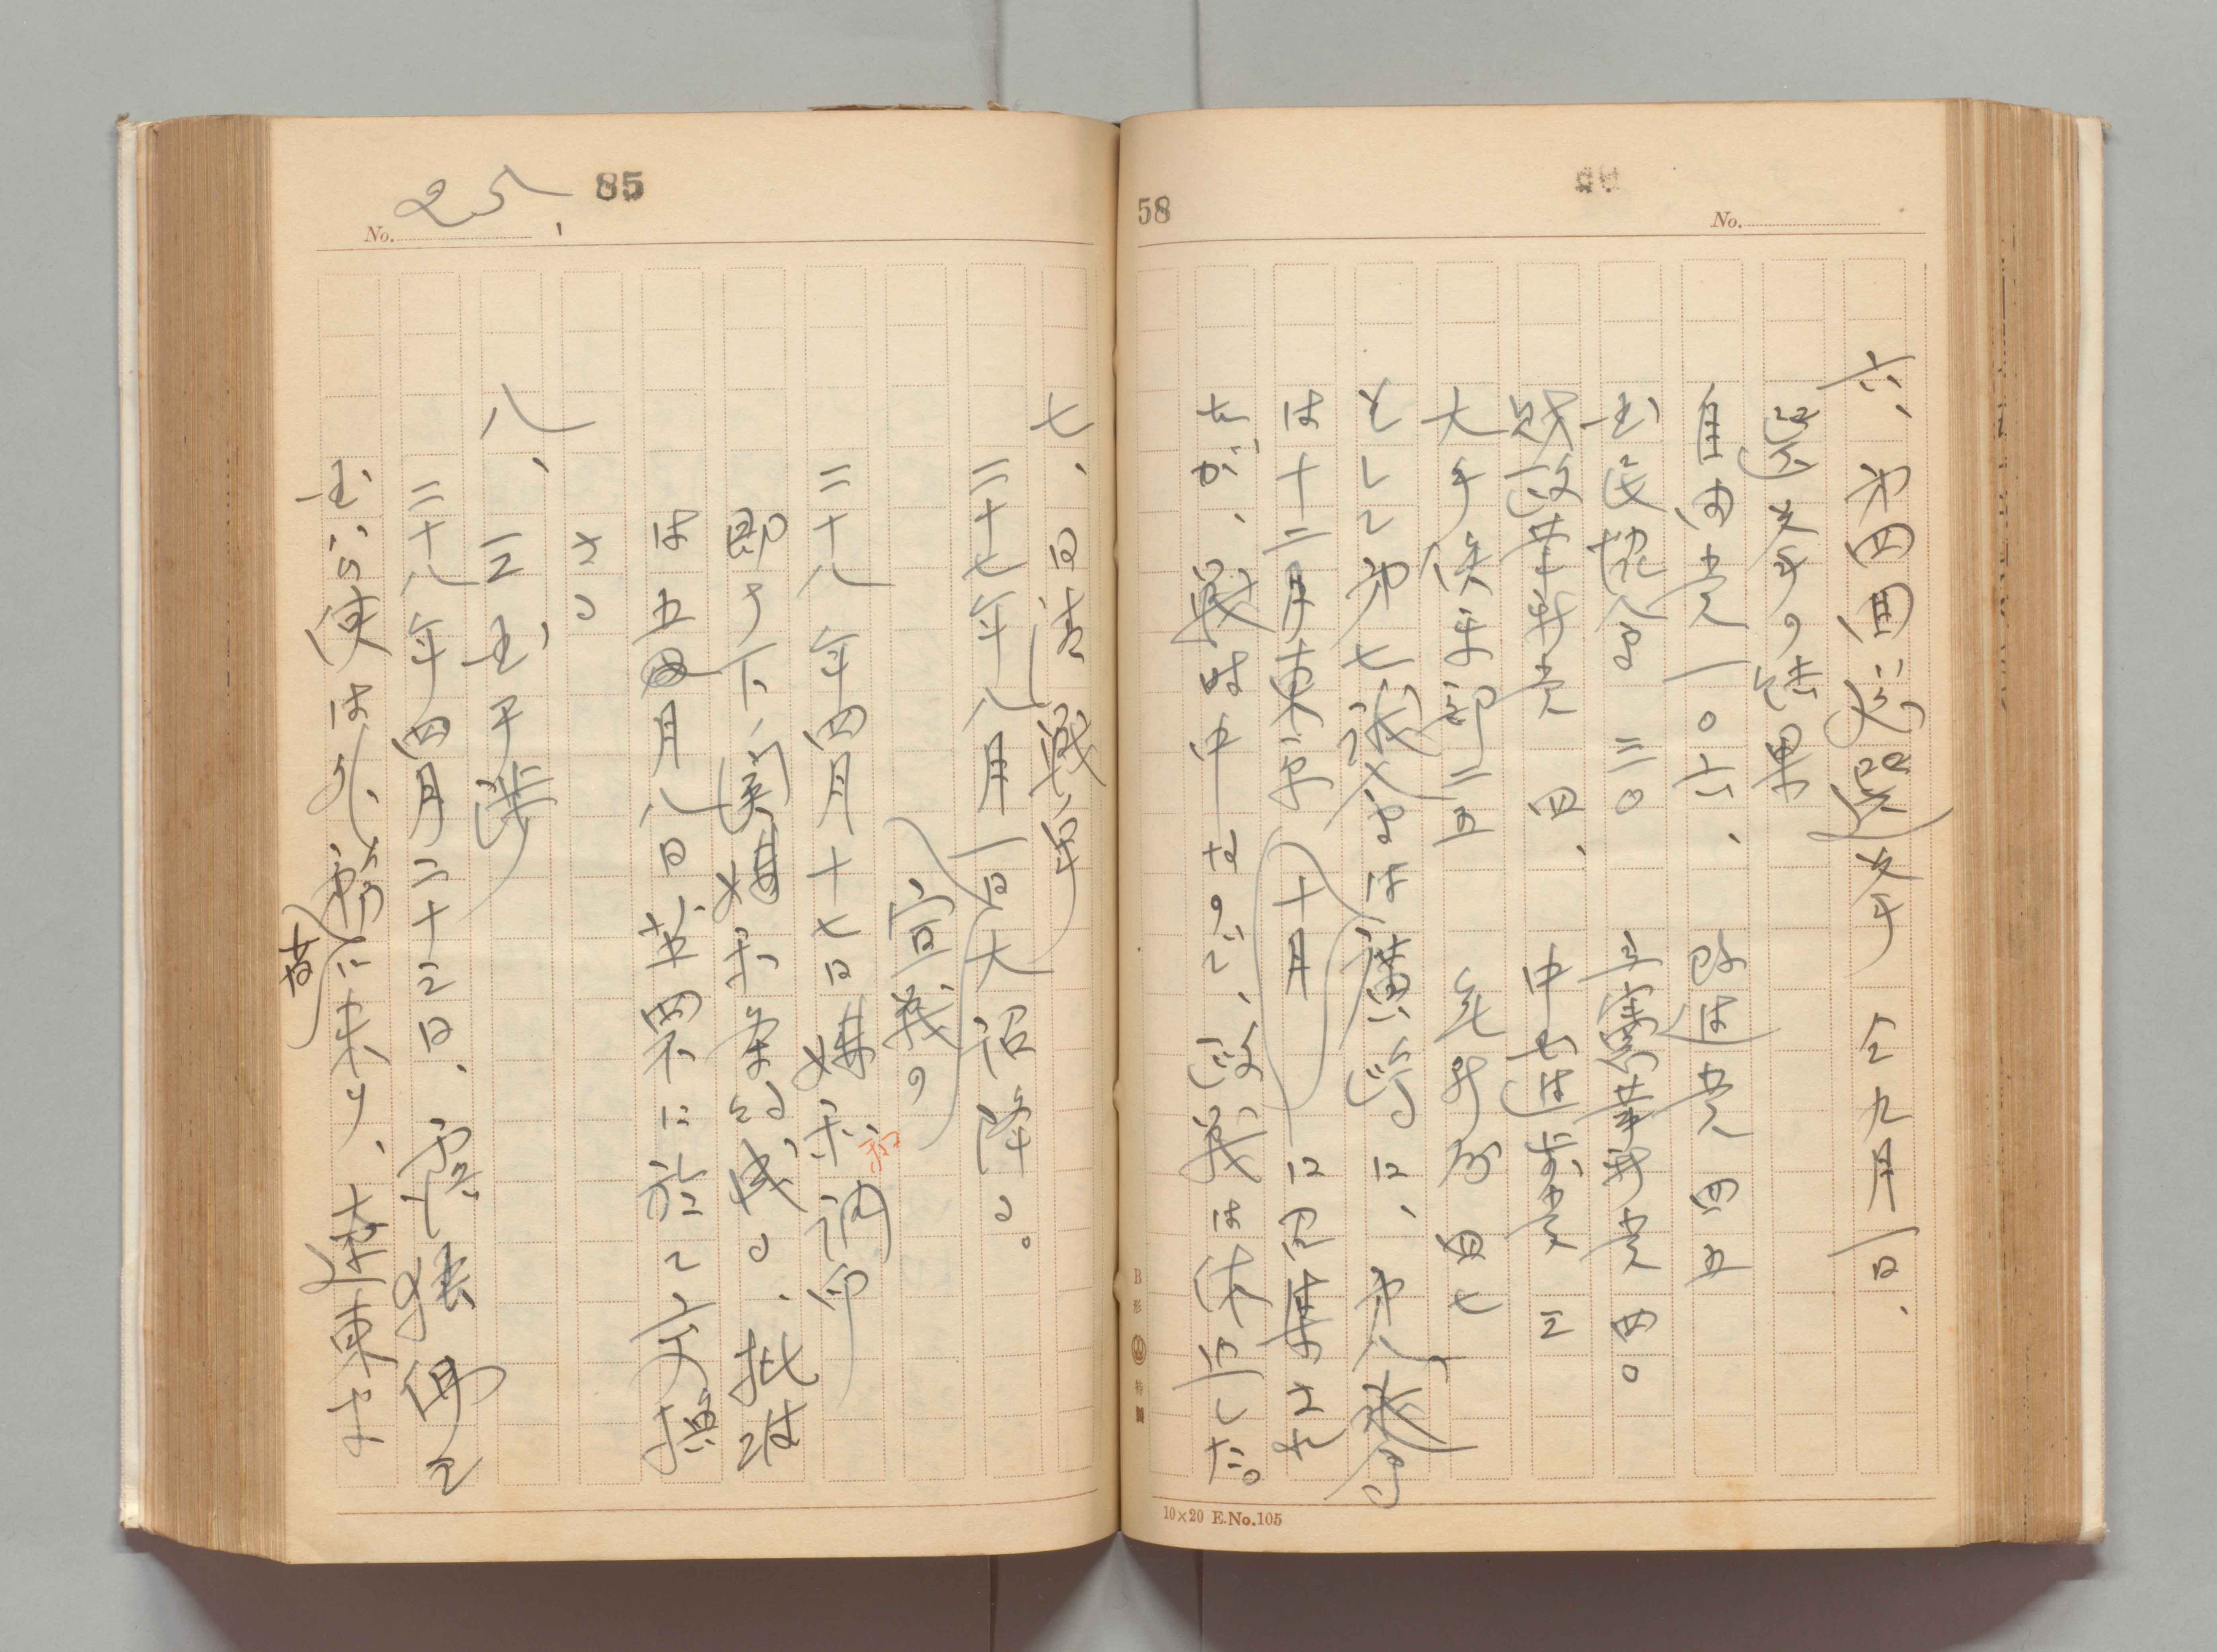 58
No.
六、第四回総選挙 仝九月一日、
選挙の結果
自由党 一〇六、 改進党 四五
国民協会 三〇 立憲革新党 四〇
財政革新党 四、 中国進歩党 三
大手倶楽部 二五 無所属 四七
そして第七議会は廣島に、第八議会
は十二月東京(十月)に召集され
たが、戦時中なので、政義は休止した。
B形 特製
10×20 E.No.105
85
No. 25
七、日清戦争
二十七年八月一日大詔降る。
宣戦の
二十八年四月十七日媾和調印
即ち下ノ関媾和条約成る、批准
は五月八日芝罘に於て交換
さる
八、三国干渉
二十八年四月二十三日、露独佛三
国公使は外務省に来り、遼東半